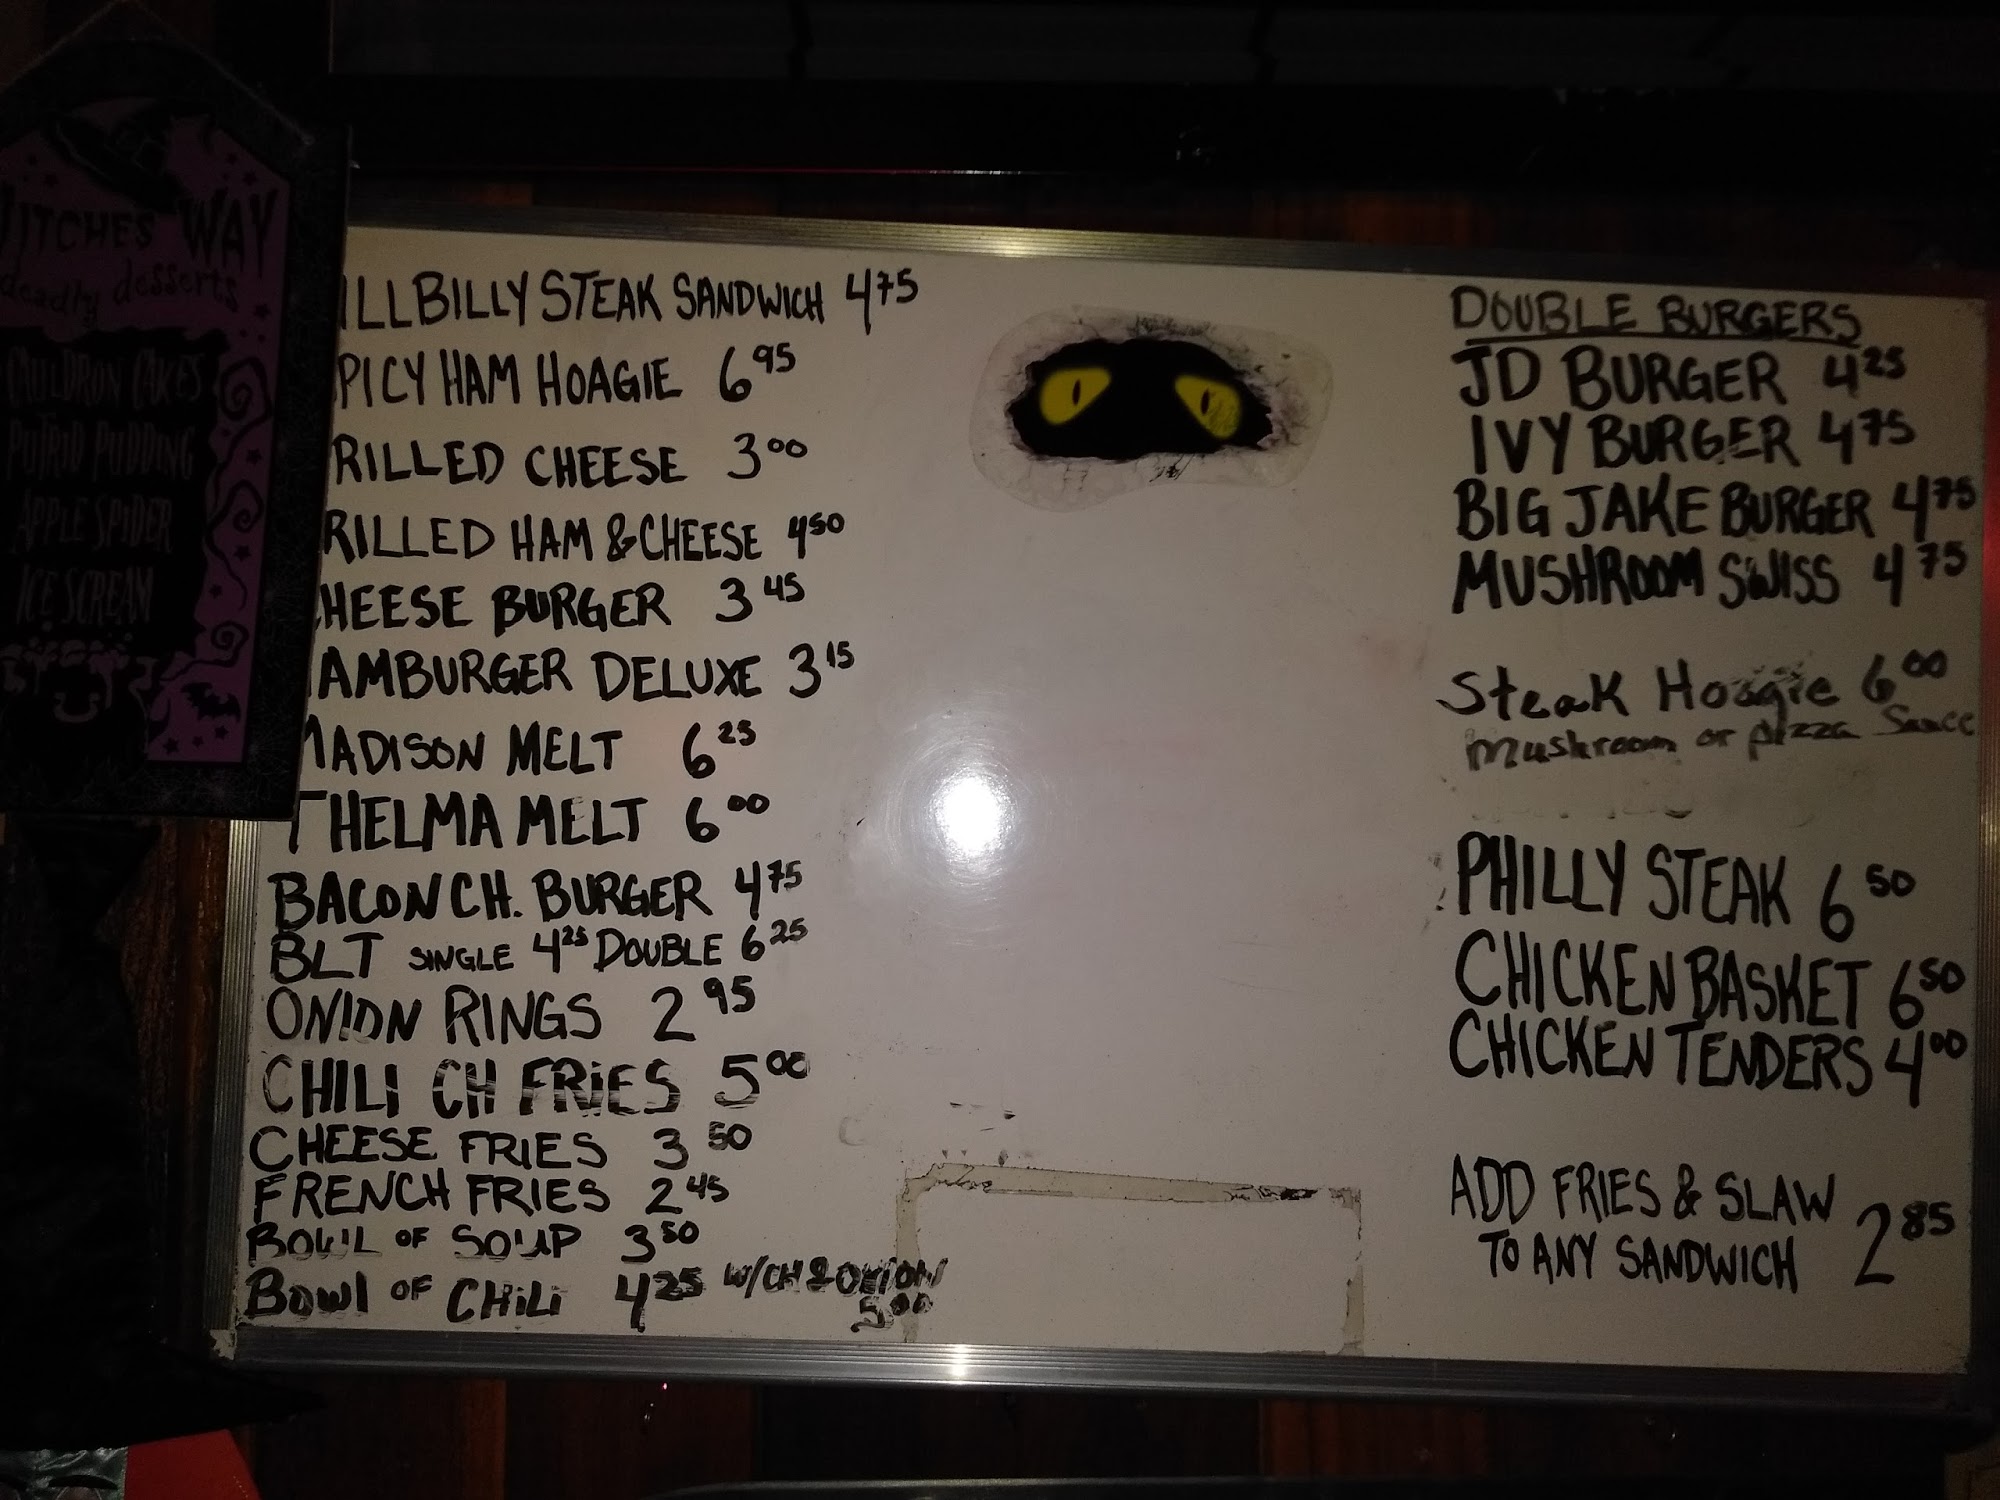 WITCHES WAY
deadly desserts
CAULDRON CAKES
PUTRID PUDDING
APPLE SPIDER
ICE SCREAM
ILLBILLY STEAK SANDWICH 4 75
PICY HAM HOAGIE 6 95
RILLED CHEESE 3 00
RILLED HAM & CHEESE 4 50
HEESE BURGER 3 45
AMBURGER DELUXE 3 15
MADISON MELT 6 25
THELMA MELT 6 00
BACON CH. BURGER 4 75
BLT SINGLE 4 25 DOUBLE 6 25
ONION RINGS 2 95
CHILI CH FRIES 5 00
CHEESE FRIES 3 50
FRENCH FRIES 2 45
BOWL OF SOUP 3 50
BOWL OF CHILI 4 25 W/CH & ONION
5 00
DOUBLE BURGERS
JD BURGER 4 25
IVY BURGER 4 75
BIG JAKE BURGER 4 75
MUSHROOM SWISS 4 75
Steak Hoagie 6 00
Mushroom or pizza Sauce
PHILLY STEAK 6 50
CHICKEN BASKET 6 50
CHICKEN TENDERS 4 00
ADD FRIES & SLAW
TO ANY SANDWICH 2 85